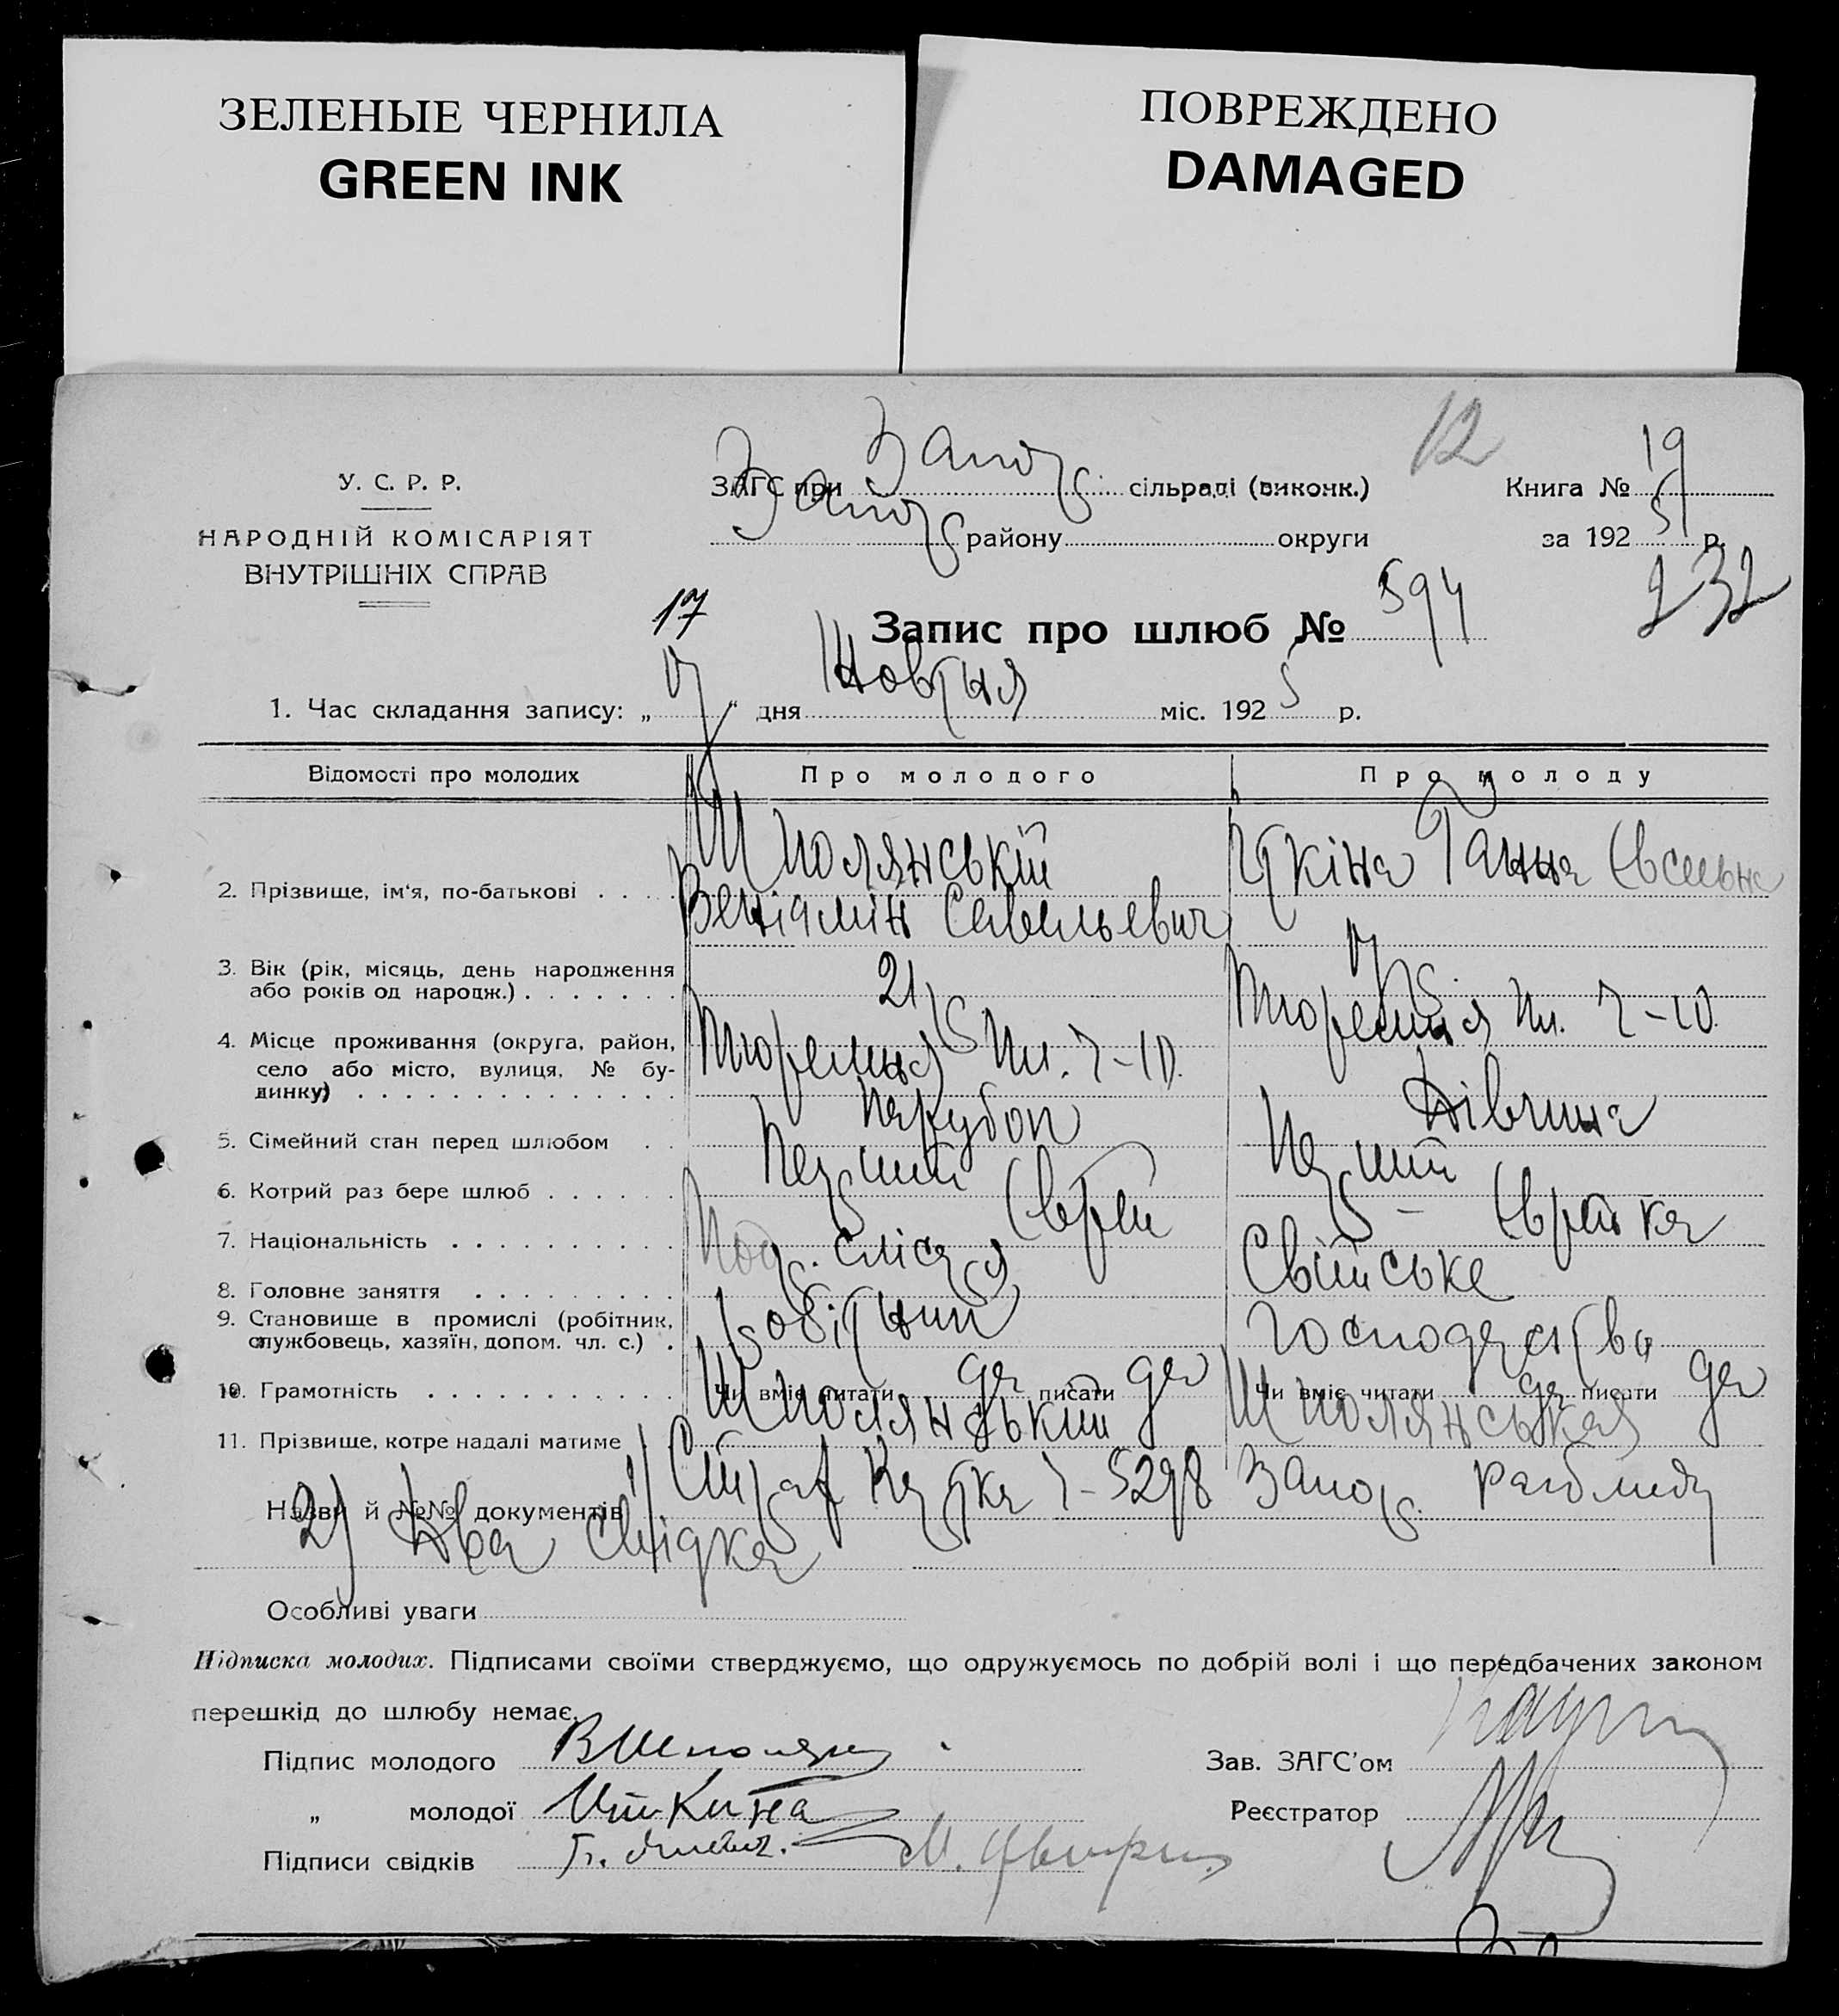 ЗЕЛЕНЫЕ ЧЕРНИЛА
GREEN INK
ПОВРЕЖДЕНО
DAMAGED
12
У. С. Р. Р.
НАРОДНІЙ КОМІСАРІЯТ
ВНУТРІШНІХ СПРАВ
ЗАГС при Запор. сільраді (виконк.)
Запор району округи
Книга № 19
за 1925 р.
232
Запис про шлюб № 594
17
1. Час складання запису: „17“ дня Жовтня міс. 1925 р.
Відомості про молодих Про молодого Про молоду
2. Прізвище, ім'я, по-батькові . . . Шполянській Веніямін Савельевич Іткіна Ганна Євсеевна
3. Вік (рік, місяць, день народження або років од народж.) . . . . . . . 21 р
4. Місце проживання (округа, район, село або місто, вулиця, № будинку) . . . . . . Тюремная пл. 7-10. Тюремная пл. 7-10.
5. Сімейний стан перед шлюбом . . Парубок Дівчина
6. Котрий раз бере шлюб . . . . . . Перший Перший
7. Національність . . . . . . . . . . Єврей Єврейка
8. Головне заняття . . . . . . . . . слюсаря Свійське
9. Становище в промислі (робітник, службовець, хазяїн, допом. чл. с.) . робітник господарство
10. Грамотність . . . . . . . . . . . Чи вміє читати да писати да Чи вміє читати да писати да
11. Прізвище, котре надалі матиме Шполянський Шполянськая
Назви й №№ документів 1) картка 7-5298 Запор.
2) Два свідка
Особливі уваги
Підписка молодих. Підписами своїми стверджуємо, що одружуємось по добрій волі і що передбачених законом
перешкід до шлюбу немає.
Підпис молодого ВШполянс
Зав. ЗАГС'ом
„ молодої Иткина
Реєстратор
Підписи свідків